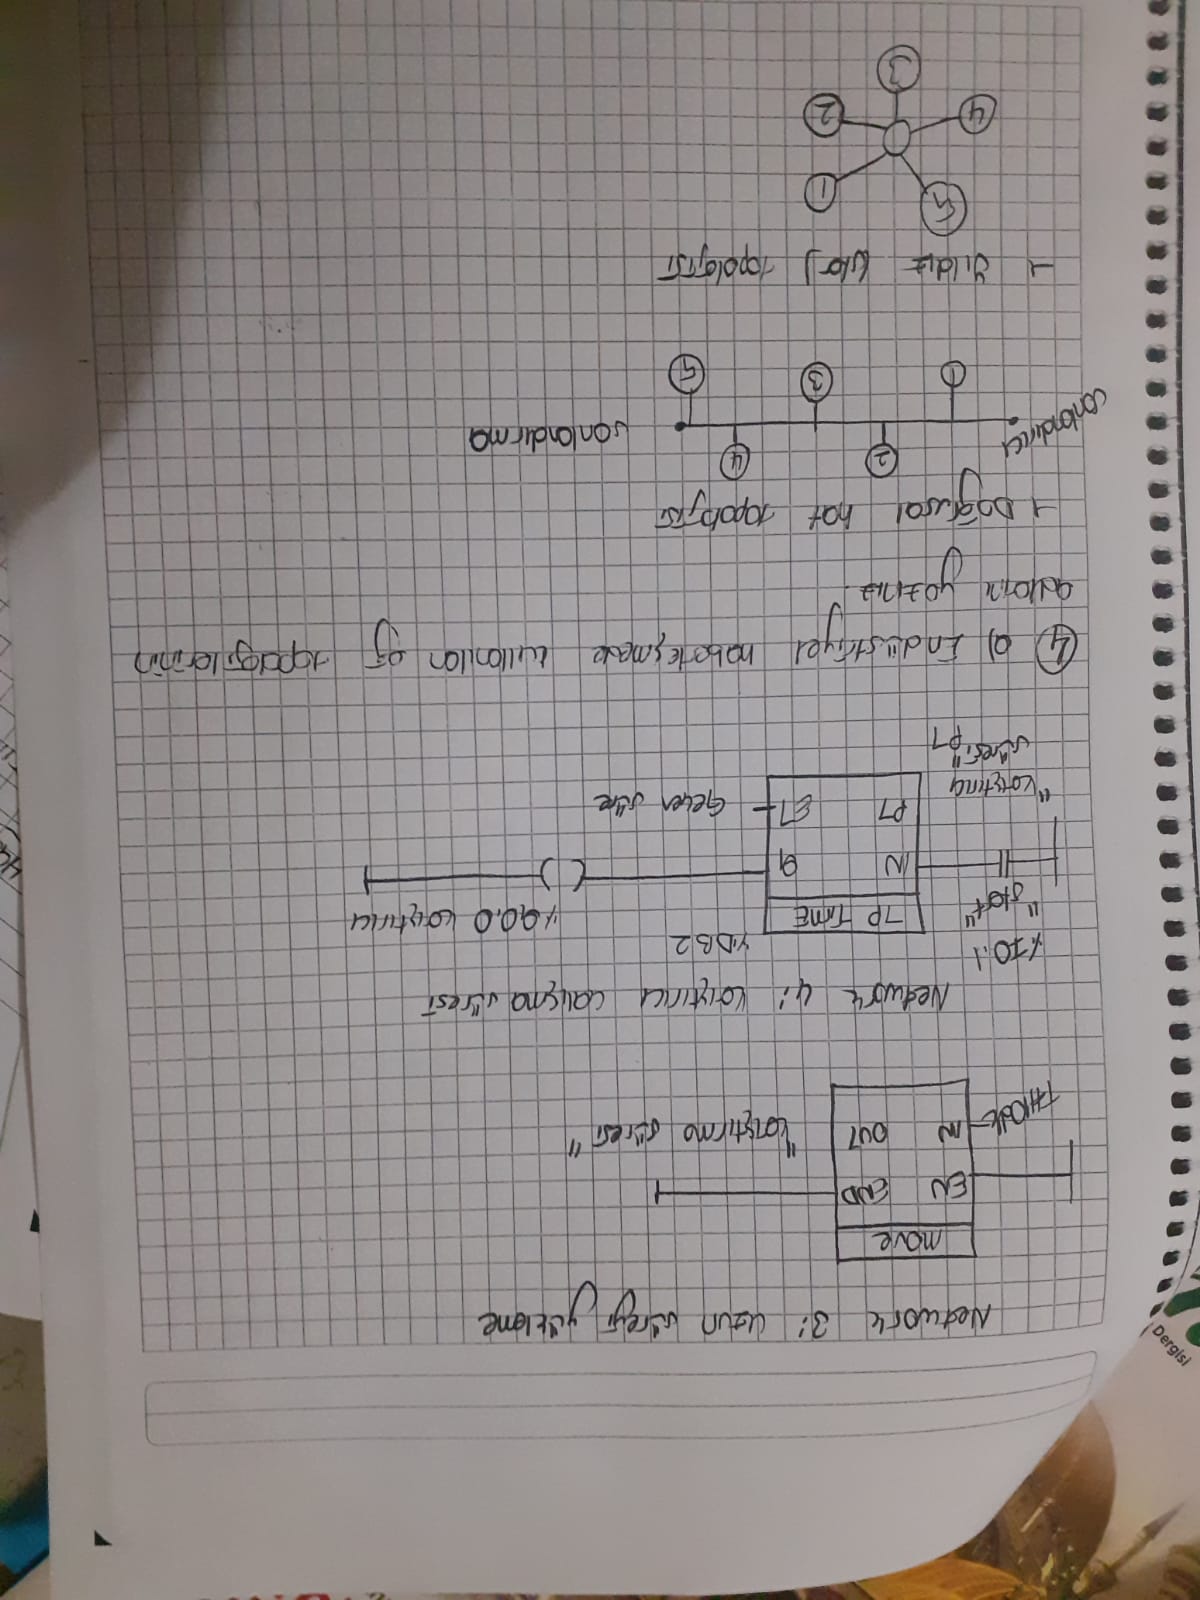 Dergisi
Network 3: Uzun süreyi yükleme
move
EN END
IN OUT "karıştırma süresi"
Network 4: Karıştırıcı çalışma süresi
%I0.1
"start"
TP TIME
%DB2
%Q0.0 karıştırıcı
IN Q
PT ET Geçen süre
"karıştırıcı
süresi"
PT
4 a) Endüstriyel haberleşmede kullanılan ağ topolojilerinin
adlarını yazınız.
→ Doğrusal hat topolojisi
sonlandırıcı
2
4
sonlandırma
1
3
5
→ Yıldız (star) topolojisi
5
1
4
2
3